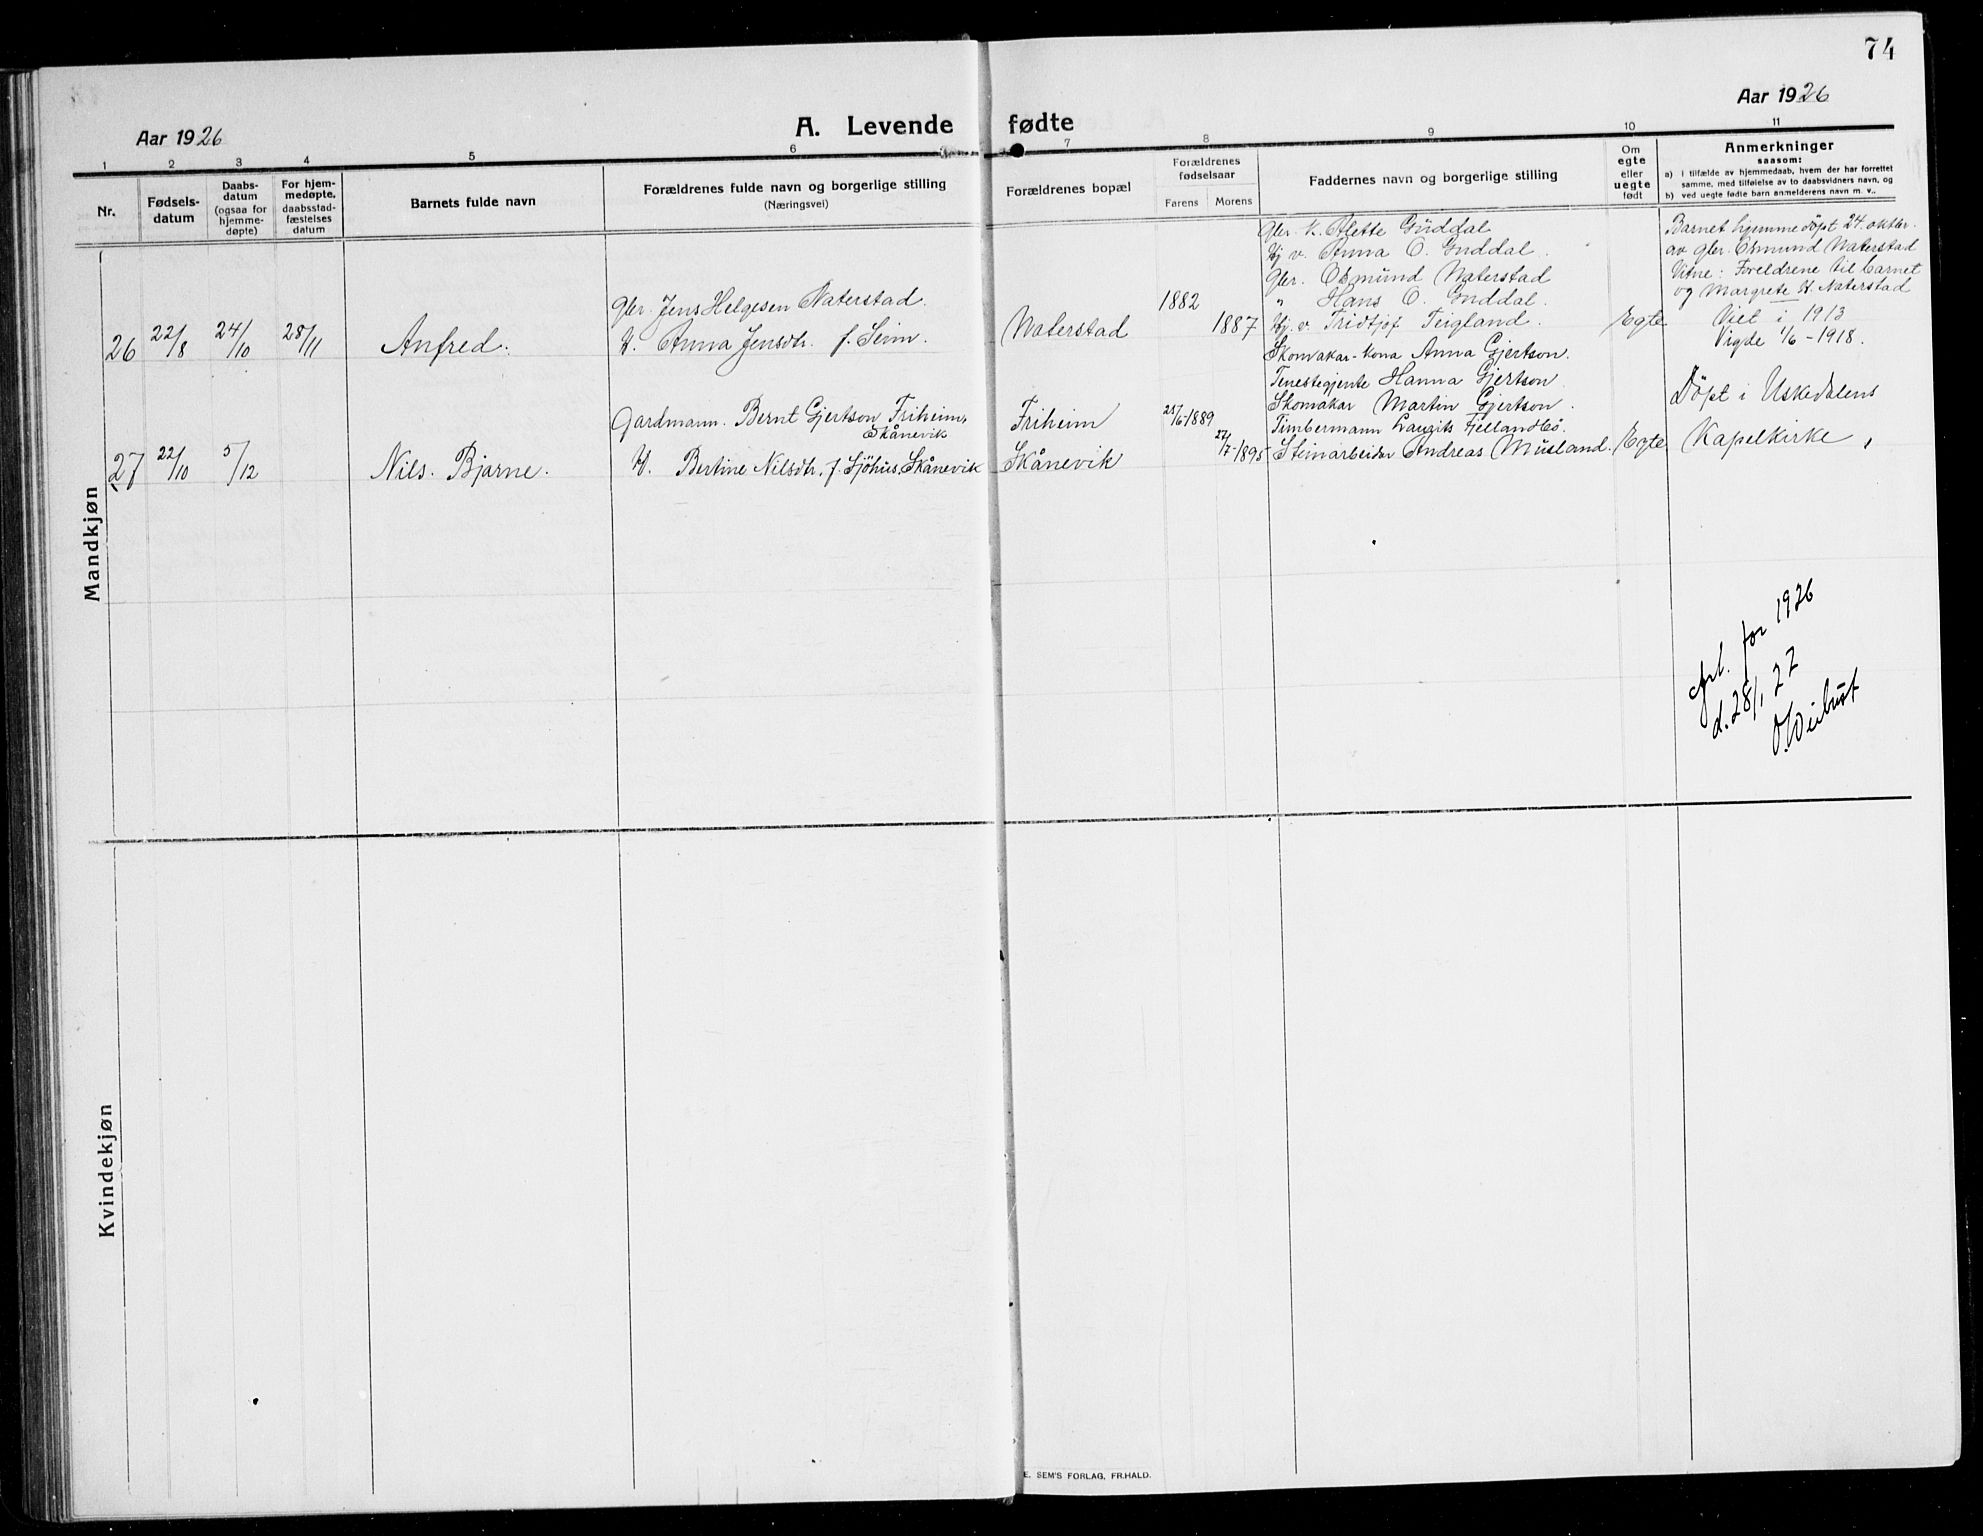 74
Aar 1926
Aar 1926
A. Levende fødte
1 2 3 4 5 6 7 8 9 10 11
Nr.
Fødsels-
datum
Daabs-
datum
(ogsaa for
hjemme-
døpte)
For hjem-
medøpte,
daabsstad-
fæstelses
datum
Barnets fulde navn
Forældrenes fulde navn og borgerlige stilling
(Næringsvei)
Forældrenes bopæl
Forældrenes
fødselsaar
Farens Morens
Faddernes navn og borgerlige stilling
Om
egte
eller
uegte
født
Anmerkninger
saasom:
a) i tilfælde av hjemmedaab, hvem der har forrettet
samme, med tilføielse av to daabsvidners navn, og
b) ved uegte fødte barn anmelderens navn m. v..
Mandkjøn
26 22/8 24/10 28/11 Anfred.
Gbr. Jens Helgesen Naterstad.
H. Anna Jensdtr. f. Seim.
Naterstad
1882
1887
Gbr. k. Alette Guddal
Uj v. Anna O. Guddal.
Gbr. Osmund Naterstad
" Hans O. Guddal.
Uj. v. Fridtjof Teigland.
Egte
Barnet hjemmedöpt 24. oktbr.
av gbr. Osmund Naterstad
Vitne: Foreldrene til barnet
og Margrete H. Naterstad
Viet i 1913
Vigde 1/6 - 1918.
27 22/10 5/12 Nils. Bjarne.
Gardmann. Bernt Gjertson Friheim,
Skånevik
H. Bertine Nilsdtr. f. Sjöhus, Skånevik
Friheim
Skånevik
/6-1889
27/7-1895
Skomakar-kona Anna Gjertson.
Tenestegjente Hanna Gjertson
Skomakar Martin Gjertson.
Timbermann Laugits Fjellandbö.
Steinarbeider Andreas Musland.
Egte
Döpt i Uskedalens
Kapelkirke,
for 1926
d. 28/1 27
O. Weibust
Kvindekjøn
E. SEM'S FORLAG, FR.HALD.